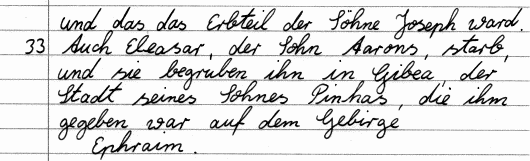 und das das Erbteil der Söhne Joseph ward.
33 Auch Eleasar, der Sohn Aarons, starb,
und sie begruben ihn in Gibea, der
Stadt seines Sohnes Pinhas, die ihm
gegeben war auf dem Gebirge
Ephraim.